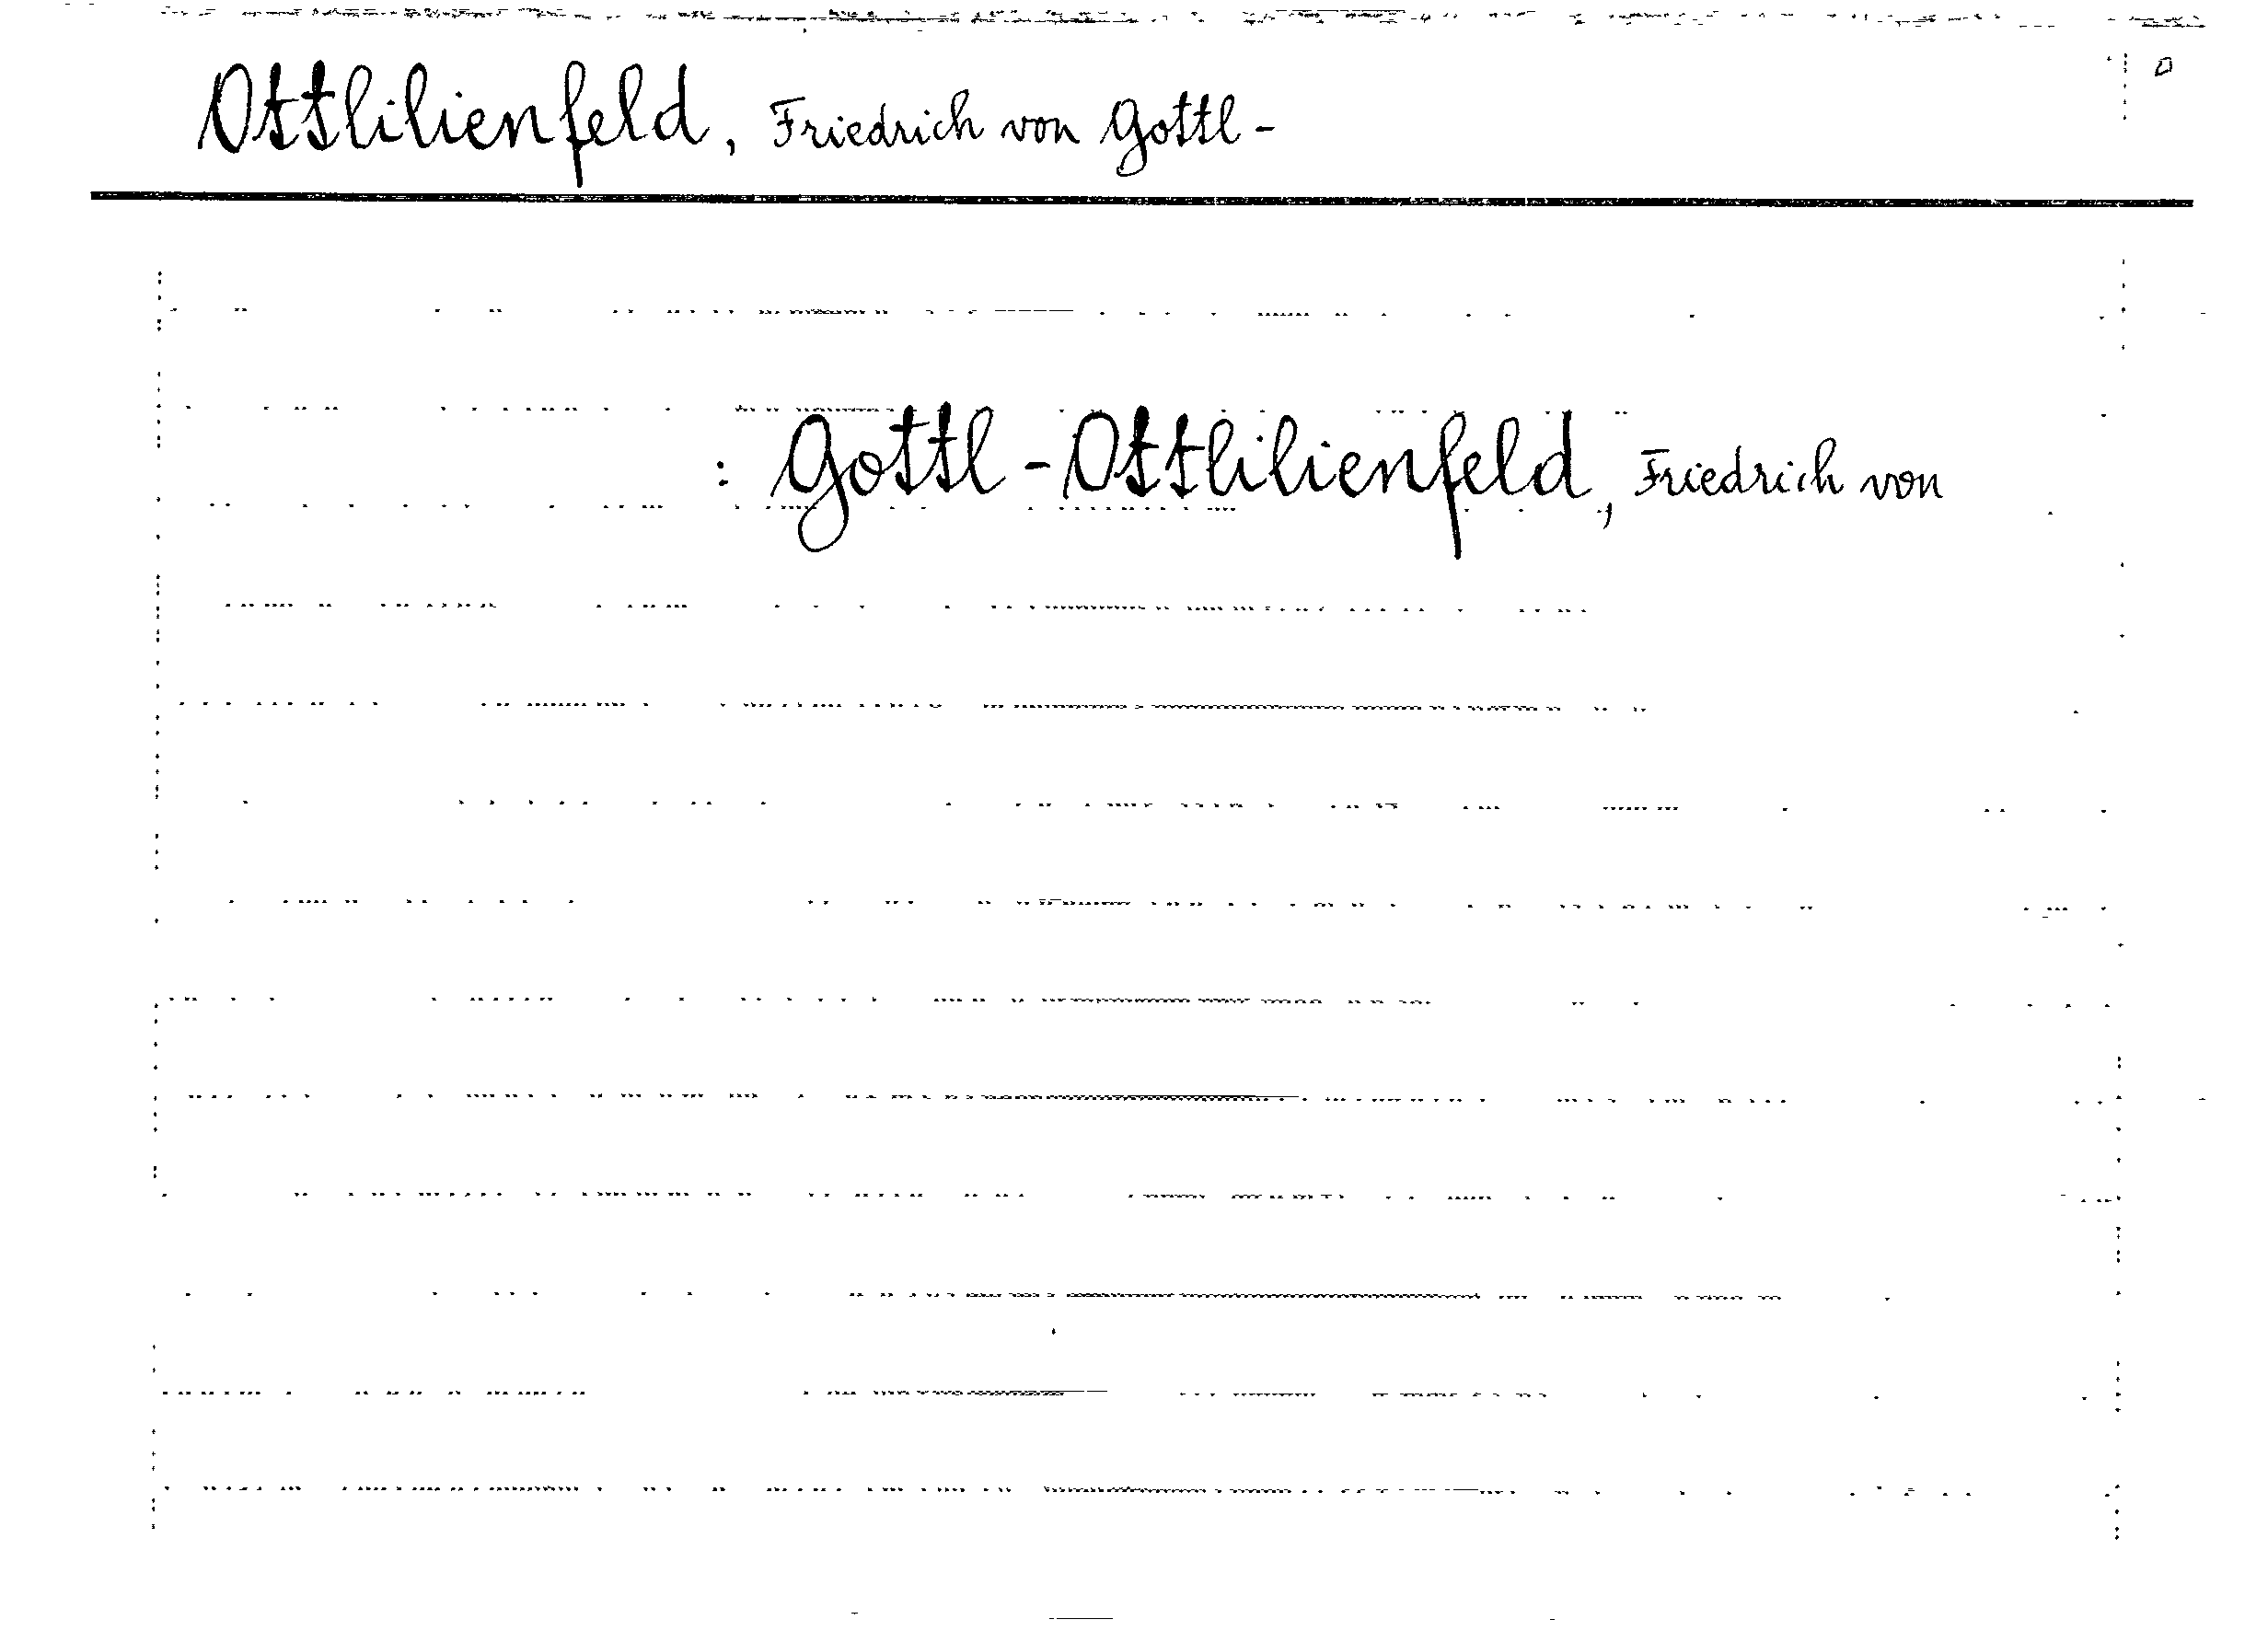 Ottlilienfeld, Friedrich von Gottl-
: Gottl-Ottlilienfeld, Friedrich von